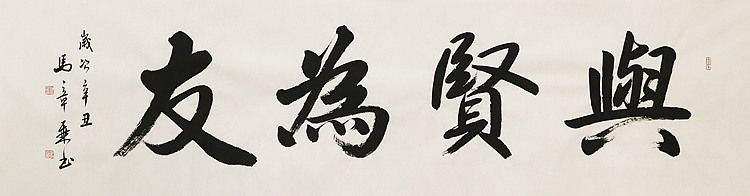 與賢為友
歲次辛丑
馬章乘书